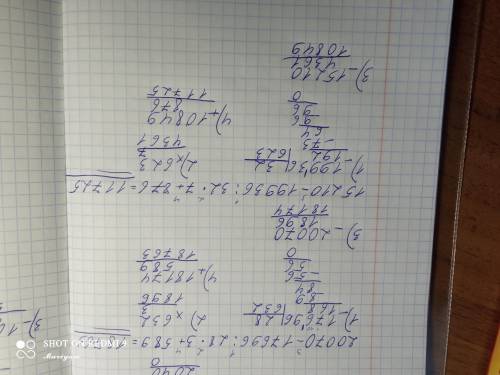 2040
0
20070-17696:28·3+589=
1) -17696 | 28
168 | 632
-89
84
-56
56
0
2) ×632
3
1896
3) -20070
1896
18174
4) +18174
589
18763
15210-19936:32·7+876=11725
1) -19936 | 32
192 | 623
-73
64
96
96
0
2) ×623
7
4361
3) -15210
4361
10849
4) +10849
876
11725
3) -
SHOT ON REDMI 9